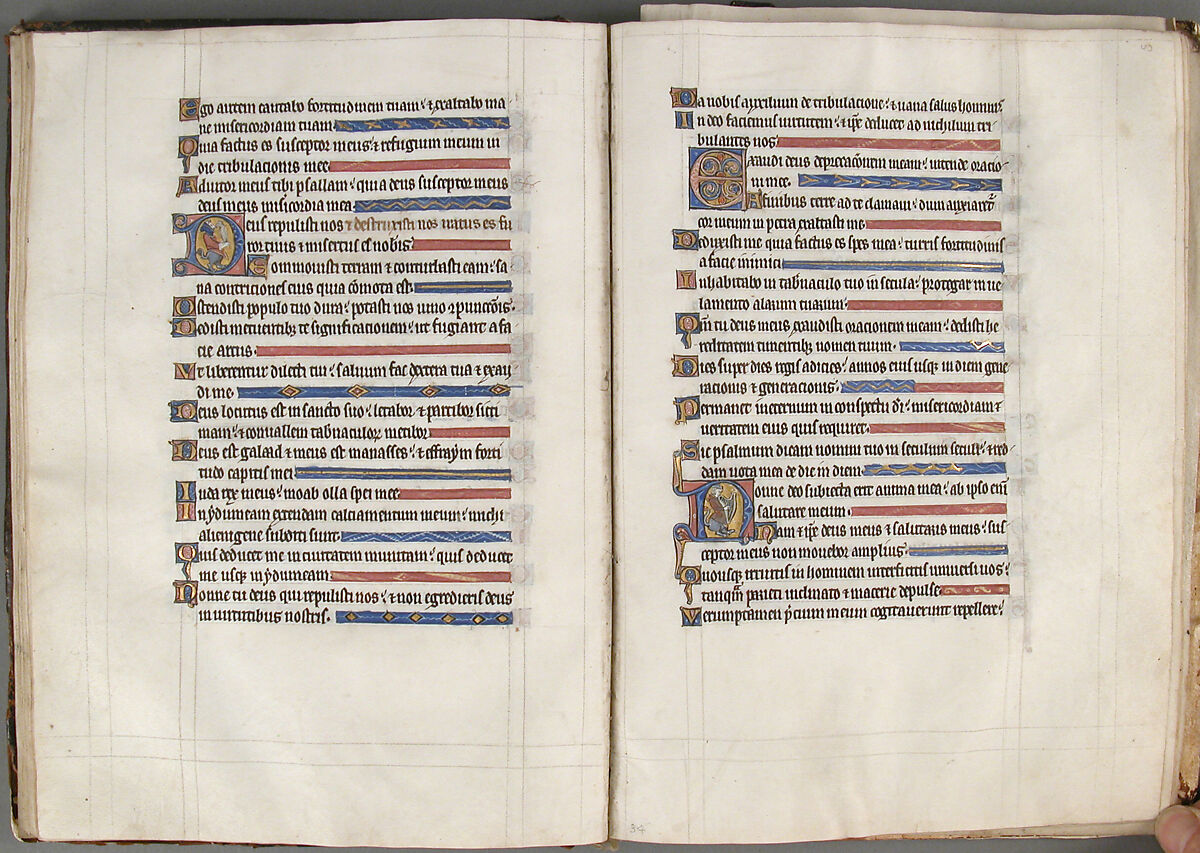 Ego autem cantabo fortitudinem tuam: & exaltabo ma
ne misericordiam tuam.
Quia factus es susceptor meus: & refugium meum in
die tribulacionis mee.
Adiutor meus tibi psallam: quia deus susceptor meus
deus meus misicordia mea.
Deus repulisti nos & destruxisti nos iratus es &
misertus es nobis.
Commovisti terram & conturbasti eam: sa
na contriciones eius quia comota est.
Ostendisti populo tuo dura: potasti nos vino 
Dedisti metuentibz te significacionem: ut fugiant a fa
cie arcus.
Vt liberentur dilecti tui: salvum fac dextera tua & exau
di me.
Deus locutus est in sancto suo: letabor & partibor sicci
mam: & convallem tabnaculoz metibor.
Meus est galaad & meus est manasses: & effraym forti
tudo capitis mei.
Iuda rex meus: moab olla spei mee.
In ydumeam extendam calciamentum meum: michi
alienigene subditi sunt.
Quis deducet me in civitatem munitam: quis deducet
me usqz in ydumeam.
Nonne tu deus qui repulisti nos: & non egredieris deus
in virtutibus nostris.
Da nobis auxilium de tribulacione: & vana salus hominis
In deo faciemus virtutem: & ipse deducet ad nichilum tri
bulantes nos.
Exaudi deus deprecacionem meam: intende oracio
ni mee.
A finibus terre ad te clamavi: dum anxiaret
cor meum in petra exaltasti me.
Deduxisti me quia factus es spes mea: turris fortitudinis
a facie inimici.
Inhabitabo in tabnaculo tuo in secula: protegar in ve
lamento alarum tuarum.
Qm tu deus meus exaudisti oracionem meam: dedisti he
reditatem timentibz nomen tuum.
Dies super dies regis adicies: annos eius usqz in diem gene
racionis & generacionis.
Permanet ineternum in conspectu di: misericordiam &
veritatem eius quis requiret.
Sic psalmum dicam nomini tuo in seculum seculi: & red
dam vota mea de die in diem.
Nonne deo subiecta erit anima mea: ab ipso eni
salutare meum.
Nam & ipse deus meus & salutaris meus: sus
ceptor meus non movebor amplius.
Quousqz irruitis in hominem interficitis universi vos:
tanqm parieti inclinato & macerie depulse.
Veruptamen pcium meum cogitaverunt repellere:
34